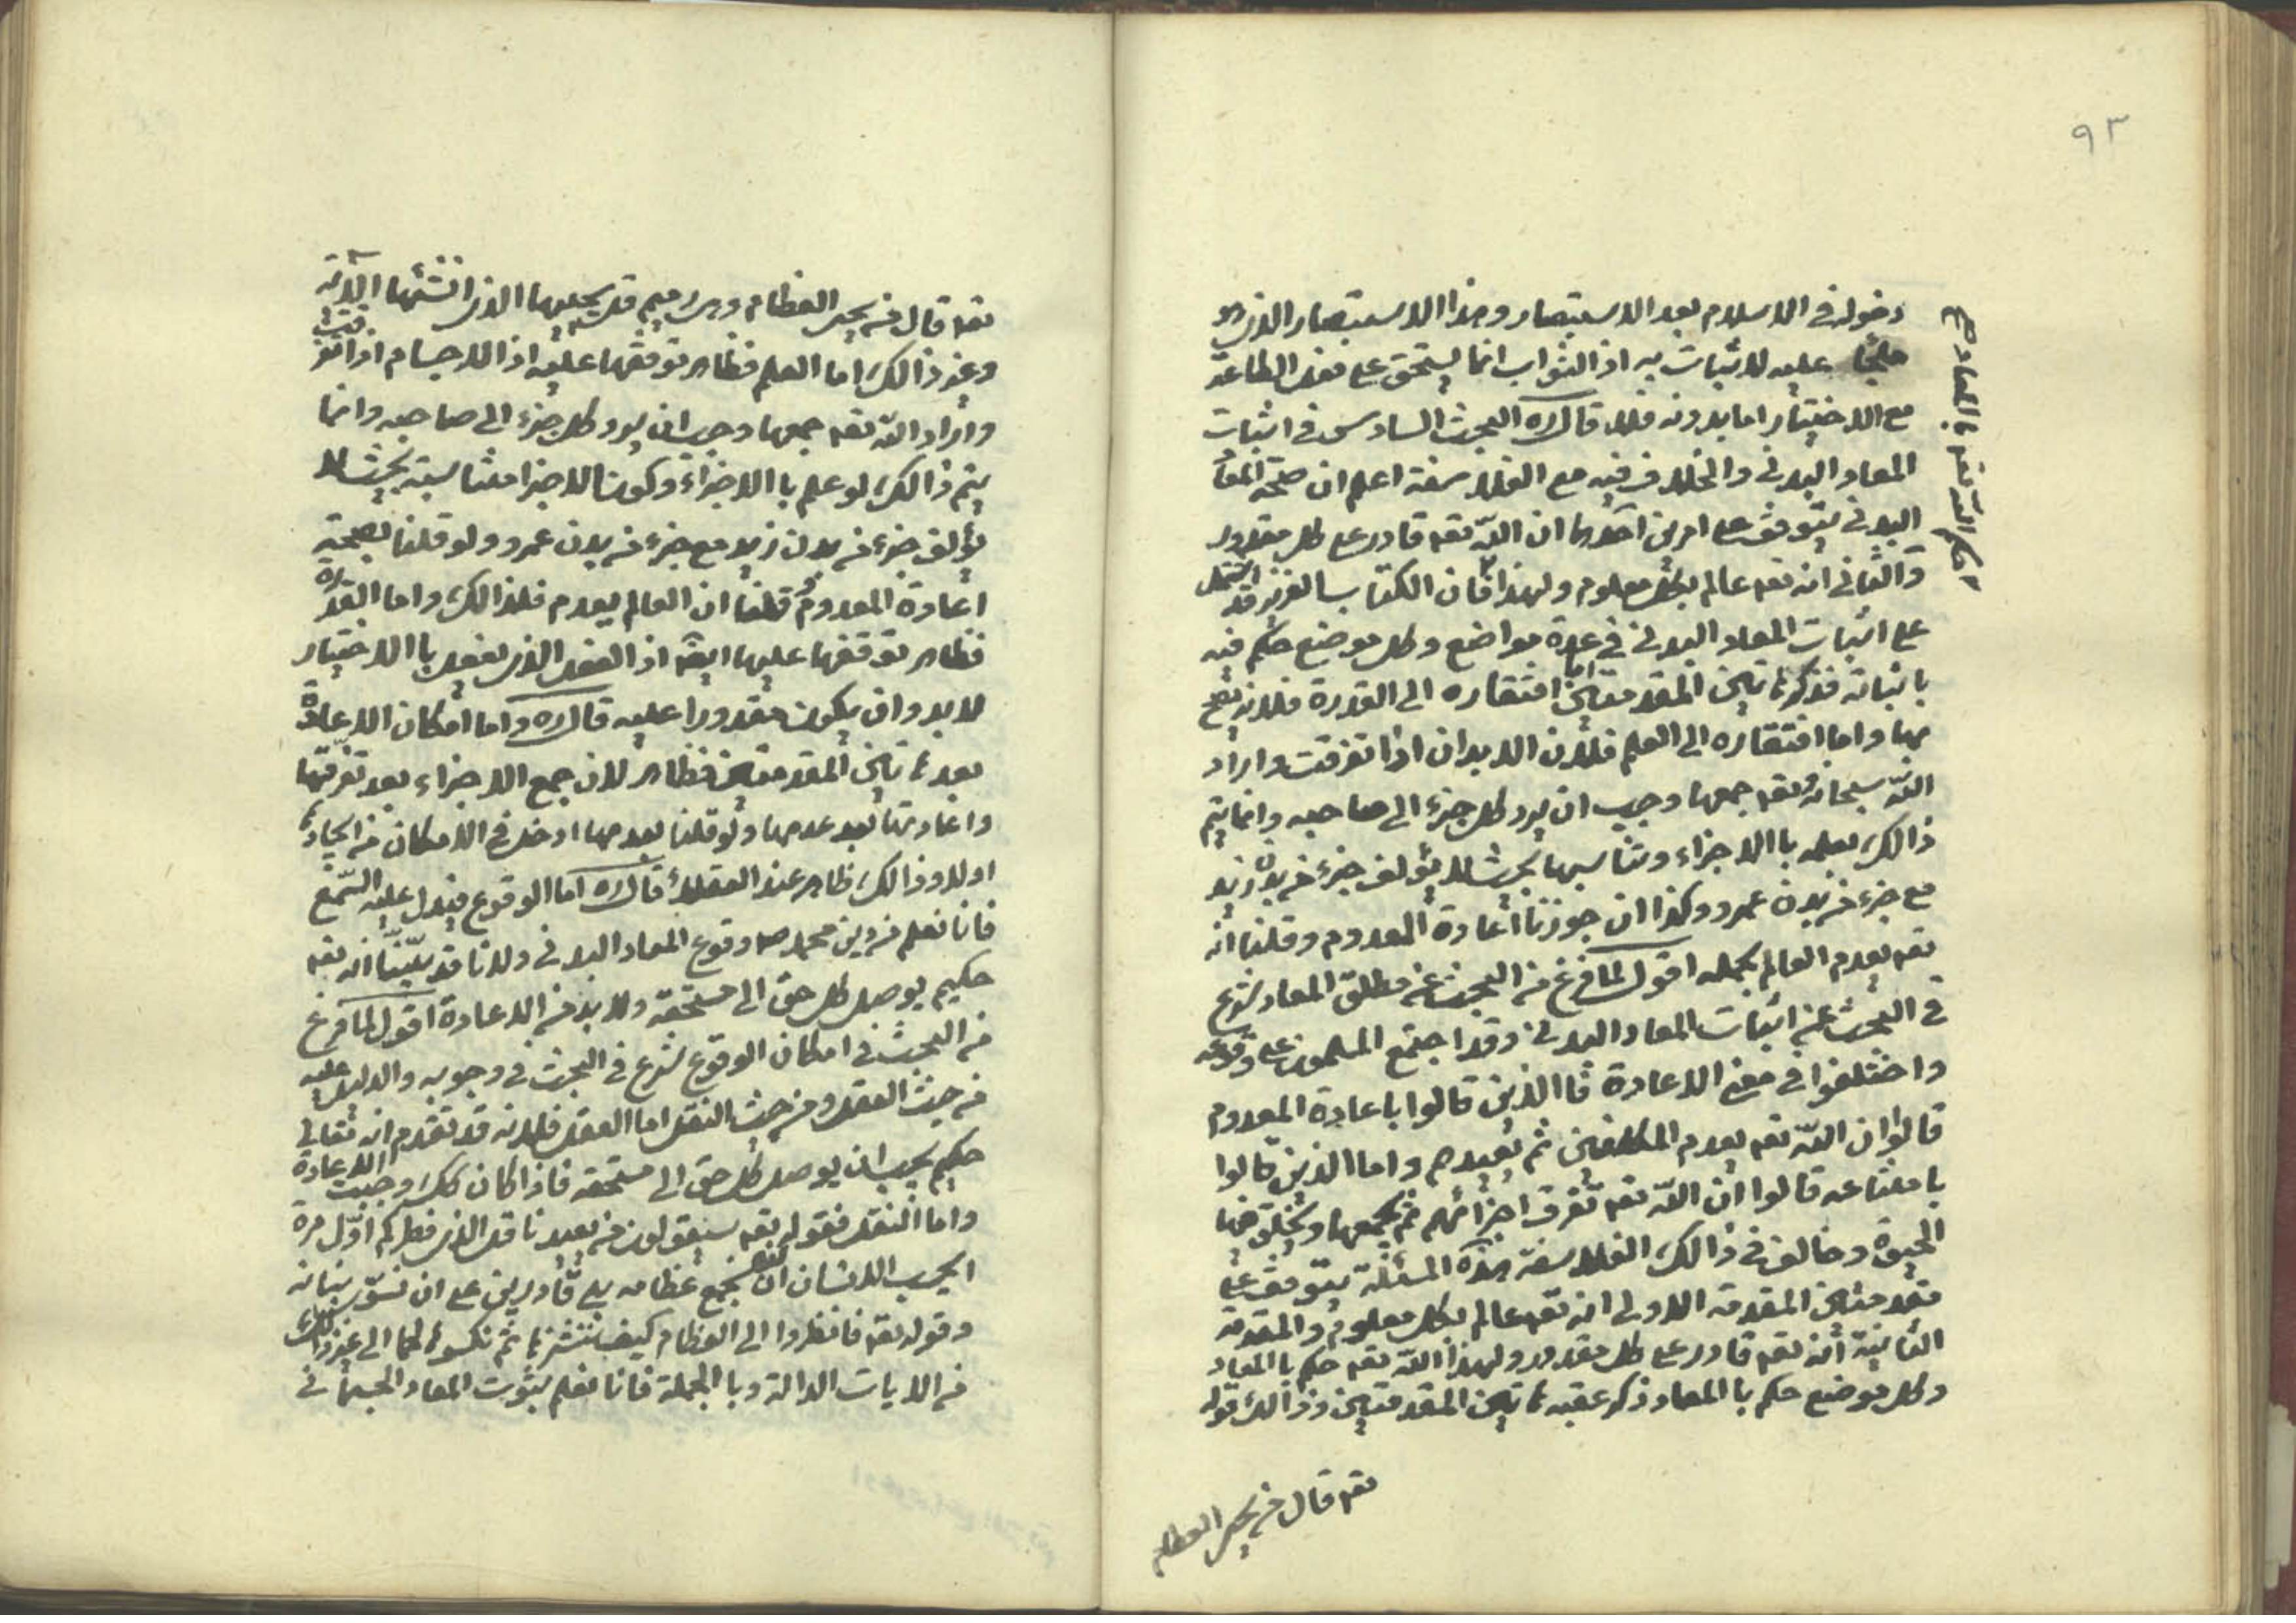 ٩٣
دخوله في الاسلام بعد الاستبصار وهذا الاستبصار الذي هو
ملجأ عليه لا ثبات به اذ الثواب انما يستحق على فعل الطاعة
مع الاختيار اما بدونه فلا قال ره البحث السادس في اثبات
المعاد البدني والخلاف فيه مع الفلاسفة اعلم ان صحة المعاد
البدني يتوقف على امرين احدهما ان الله تعه قادر على كل مقدور
والثاني انه تعه عالم بكل معلوم ولهذا فان الكتاب العزيز قد اشتمل
على اثبات المعاد البدني في عدة مواضع وكل موضع حكم فيه
باثباته قد ذكر هاتين المقدمتين اما افتقاره الى القدرة فلانه يصح
بها واما افتقاره الى العلم فلان الابدان اذا تفرقت واراد
الله سبحانه وتعه جمعها وجب ان يرد كل جزء الى صاحبه وانما يتم
ذالك بعلمه باالاجزاء وتناسبها بحيث لا يؤلف جزء من بدن زيد
مع جزء من بدن عمرو وكذا ان جوزنا اعادة المعدوم وقلنا انه
تعه يعدم العالم بجمله اقول لما فرغ من البحث عن مطلق المعاد شرع
في البحث عن اثبات المعاد البدني وقد اجتمع المسلمون على وقوعه
واختلفوا في معنى الاعادة فاالذين قالوا باعادة المعدوم
قالوا ان الله تعه يعدم المكلفين ثم يعيدهم واما الذين قالوا
بامتناعه قالوا ان الله تعه تفرق اجزائهم ثم يجمعها ويخلق فيها
الحيوة وخالف في ذالك الفلاسفة هذه المسئلة يتوقف على
مقدمتين المقدمة الاولى انه تعه عالم بكل معلوم والمقدمة
الثانية انه تعه قادر على كل مقدور ولهذا الله تعه حكم باالمعاد
وكل موضع حكم باالمعاد ذكر عقبه هاتين المقدمتين وذالك قوله
تعه قال من يحيى العظام
تعه قال من يحيى العظام وهي رميم قل يحييها الذي انشئها الآية
وغير ذالك اما العلم فظاهر توقفها عليه اذ الاجسام اذا تفرقت
واراد الله تعه جمعها وجب ان يرد كل جزء الى صاحبه وانما
يتم ذالك لو علم باالاجزاء وكون الاجزا متناسبة بحيث لا
يؤلف جزء من بدن زيد مع جزء من بدن عمرو ولو قلنا بصحة
اعادة المعدوم وقلنا ان العالم يعدم فلذالك واما القدرة
فظاهر توقفها عليها ايضا اذ الفعل الذي يفعل باالاختيار
لا بد وان يكون مقدورا عليه قال ره واما امكان الاعادة
بعد هاتين المقدمتين فظاهر لان جمع الاجزاء بعد تفرقها
واعادتها بعد عدمها ولو قلنا بعدمها ادخل في الامكان من ايجادها
اولا وذالك ظاهر عند العقلاء قال ره اما الوقوع فيدل عليه السمع
فانا نعلم من دين محمد ص وقوع المعاد البدني ولانا قد بيّنّا انه تعه
حكيم يوصل كل حق الى مستحقه ولا بد من الاعادة اقول لما فرغ
من البحث في امكان الوقوع شرع في البحث في وجوبه والدليل عليه
من حيث العقل ومن حيث النقل اما العقل فلانه قد تقدم انه تعالى
حكيم يجب ان يوصل كل حق الى مستحقه فاذا كان كك وجبت الاعادة
واما النقل فقوله تعه سيقولون من يعيدنا قل الذي فطركم اوّل مرة
ايحسب الانسان ان لن نجمع عظامه بلى قادرين على ان نسوّي بنانه
وقوله تعه فانظروا الى العظام كيف ننشزها ثم نكسوها لحما الى غير ذالك
من الايات الدالة وباالجملة فانا نعلم بثبوت المعاد الجسماني